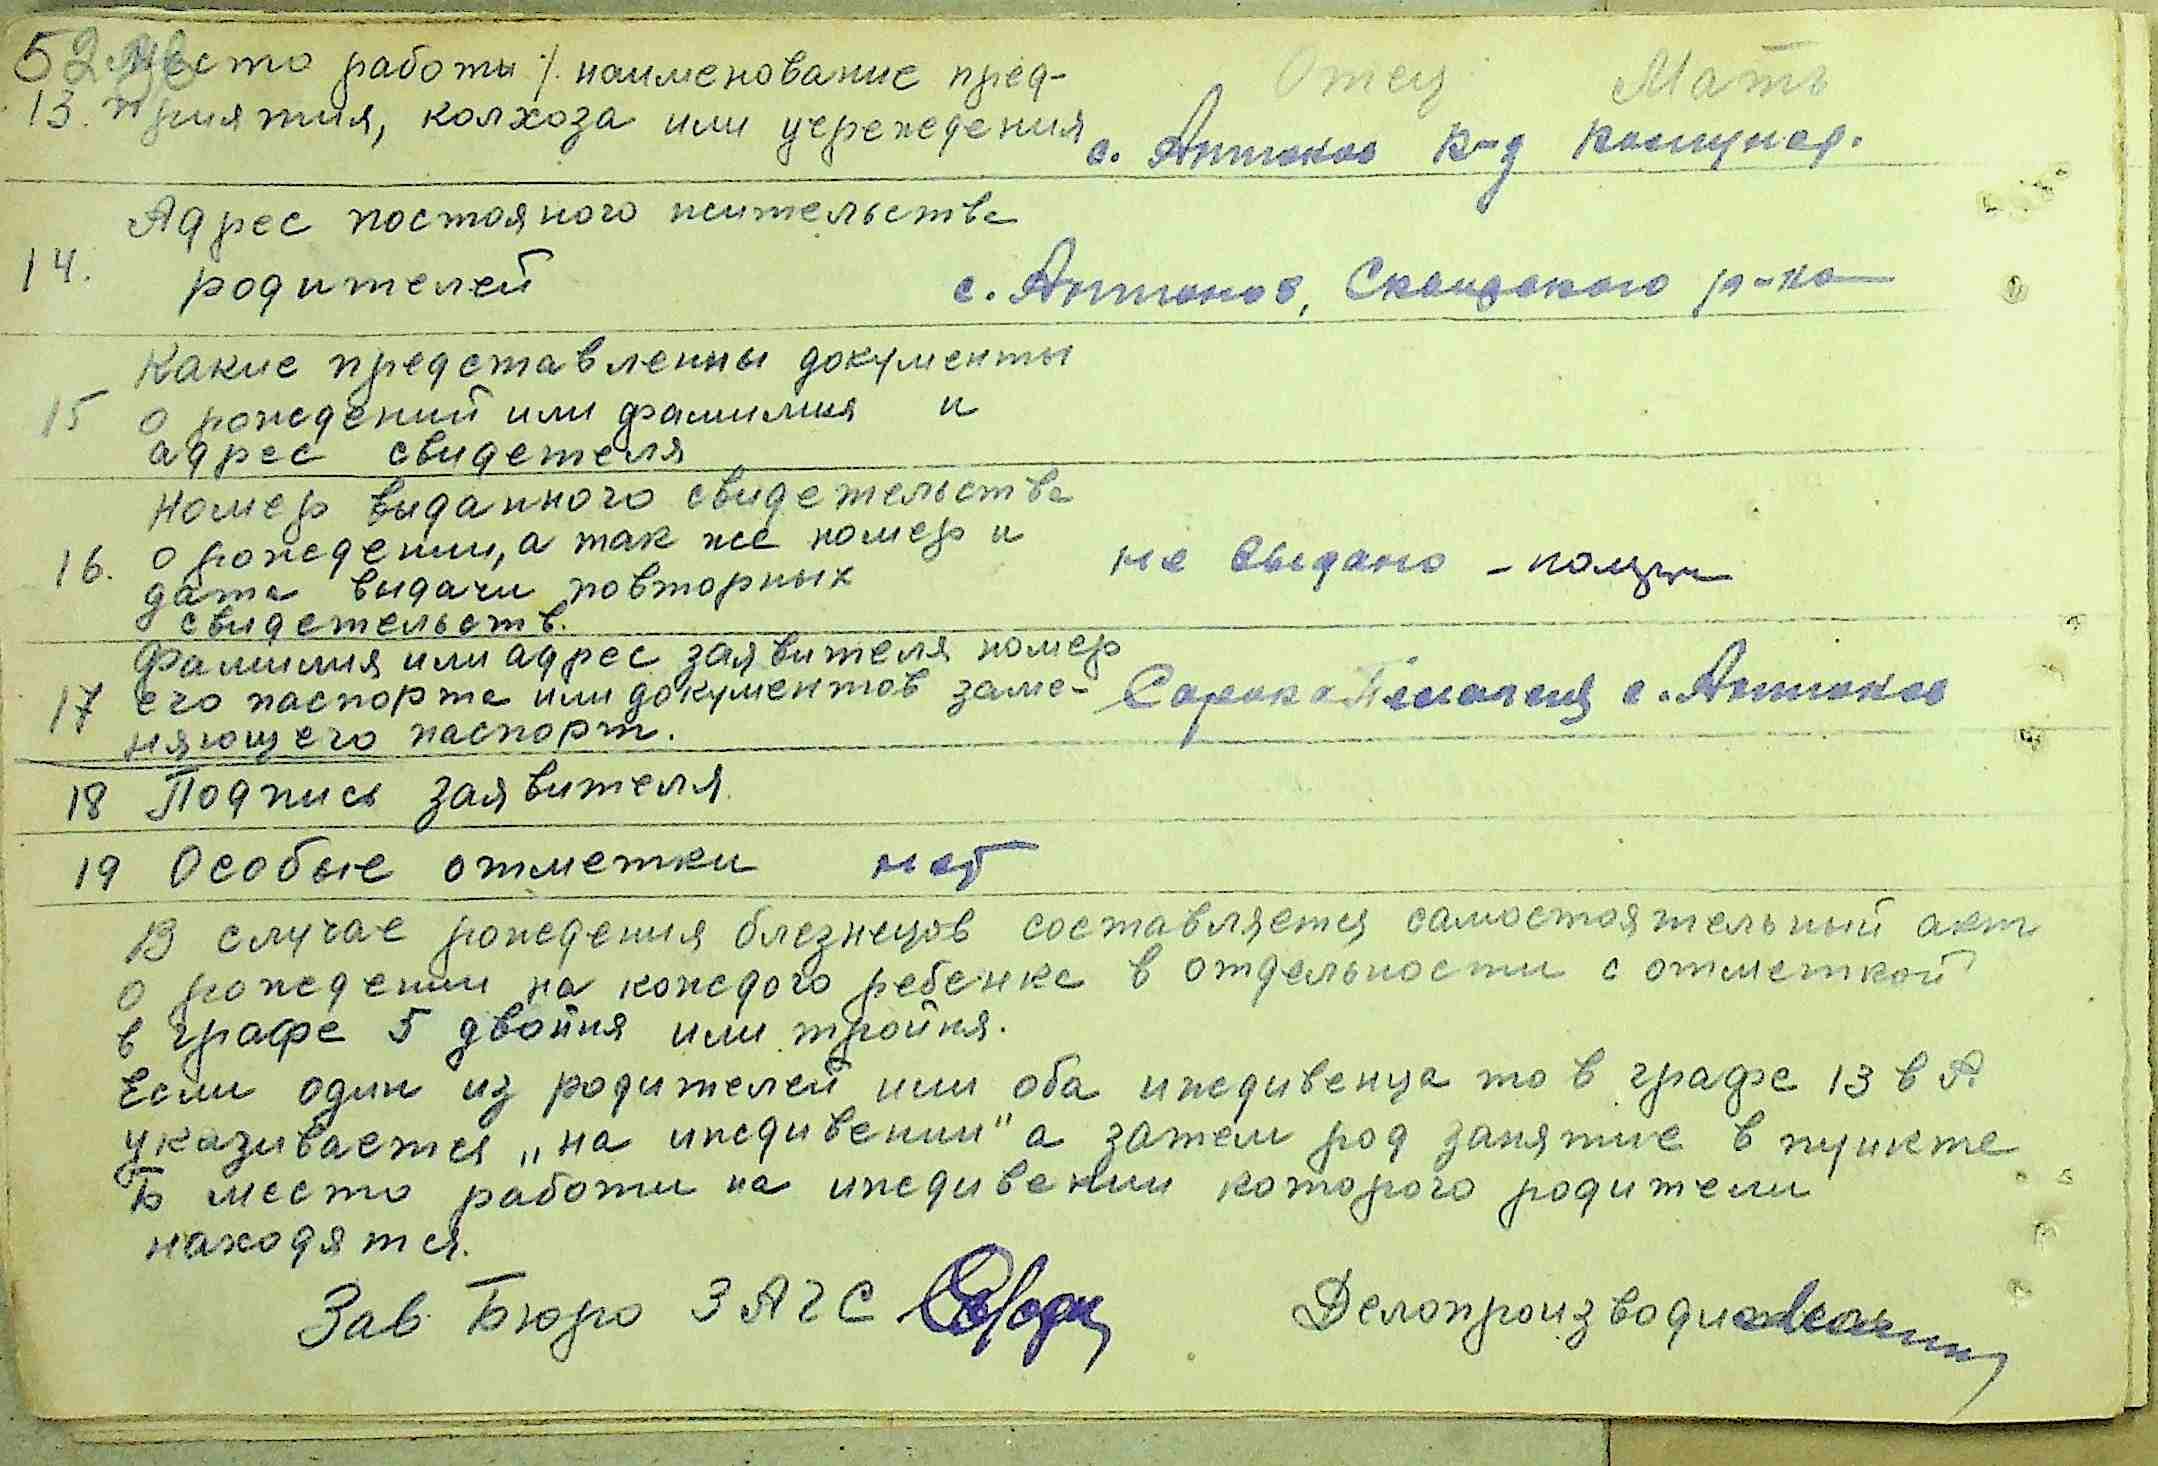 52 Место работы /. наименование пред- Отец Мать
13. приятия, колхоза или учереждения с. Антонов к-д
Адрес постояного жительства
14. родителей с. Антонов, р-на
Какие представленны документы
15 о рождений или фамилия и
адрес свидетеля
Номер виданного свидетельства
16. о рождении, а так же номер и не выдано -
дата видачи повторных
свидетельств.
Фамилия или адрес заявителя номер
17 его паспорта или документов заме- Сорока с. Антонов
няющего паспорт.
18 Подпись заявителя
19 Особые отметки нет
В случае рождения блезнецов составляется самостоятельный акт
о рождении на кождого ребенка в отдельности с отметкой
в графе 5 двойня или тройня.
Если один из родителей или оба иждивенца то в графе 13 в А.
указивается „на иждивении" а затем род занятие в пункте
Б место работи на иждивении которого родители
находятся.
Зав Бюро ЗАГС Делопроизводи